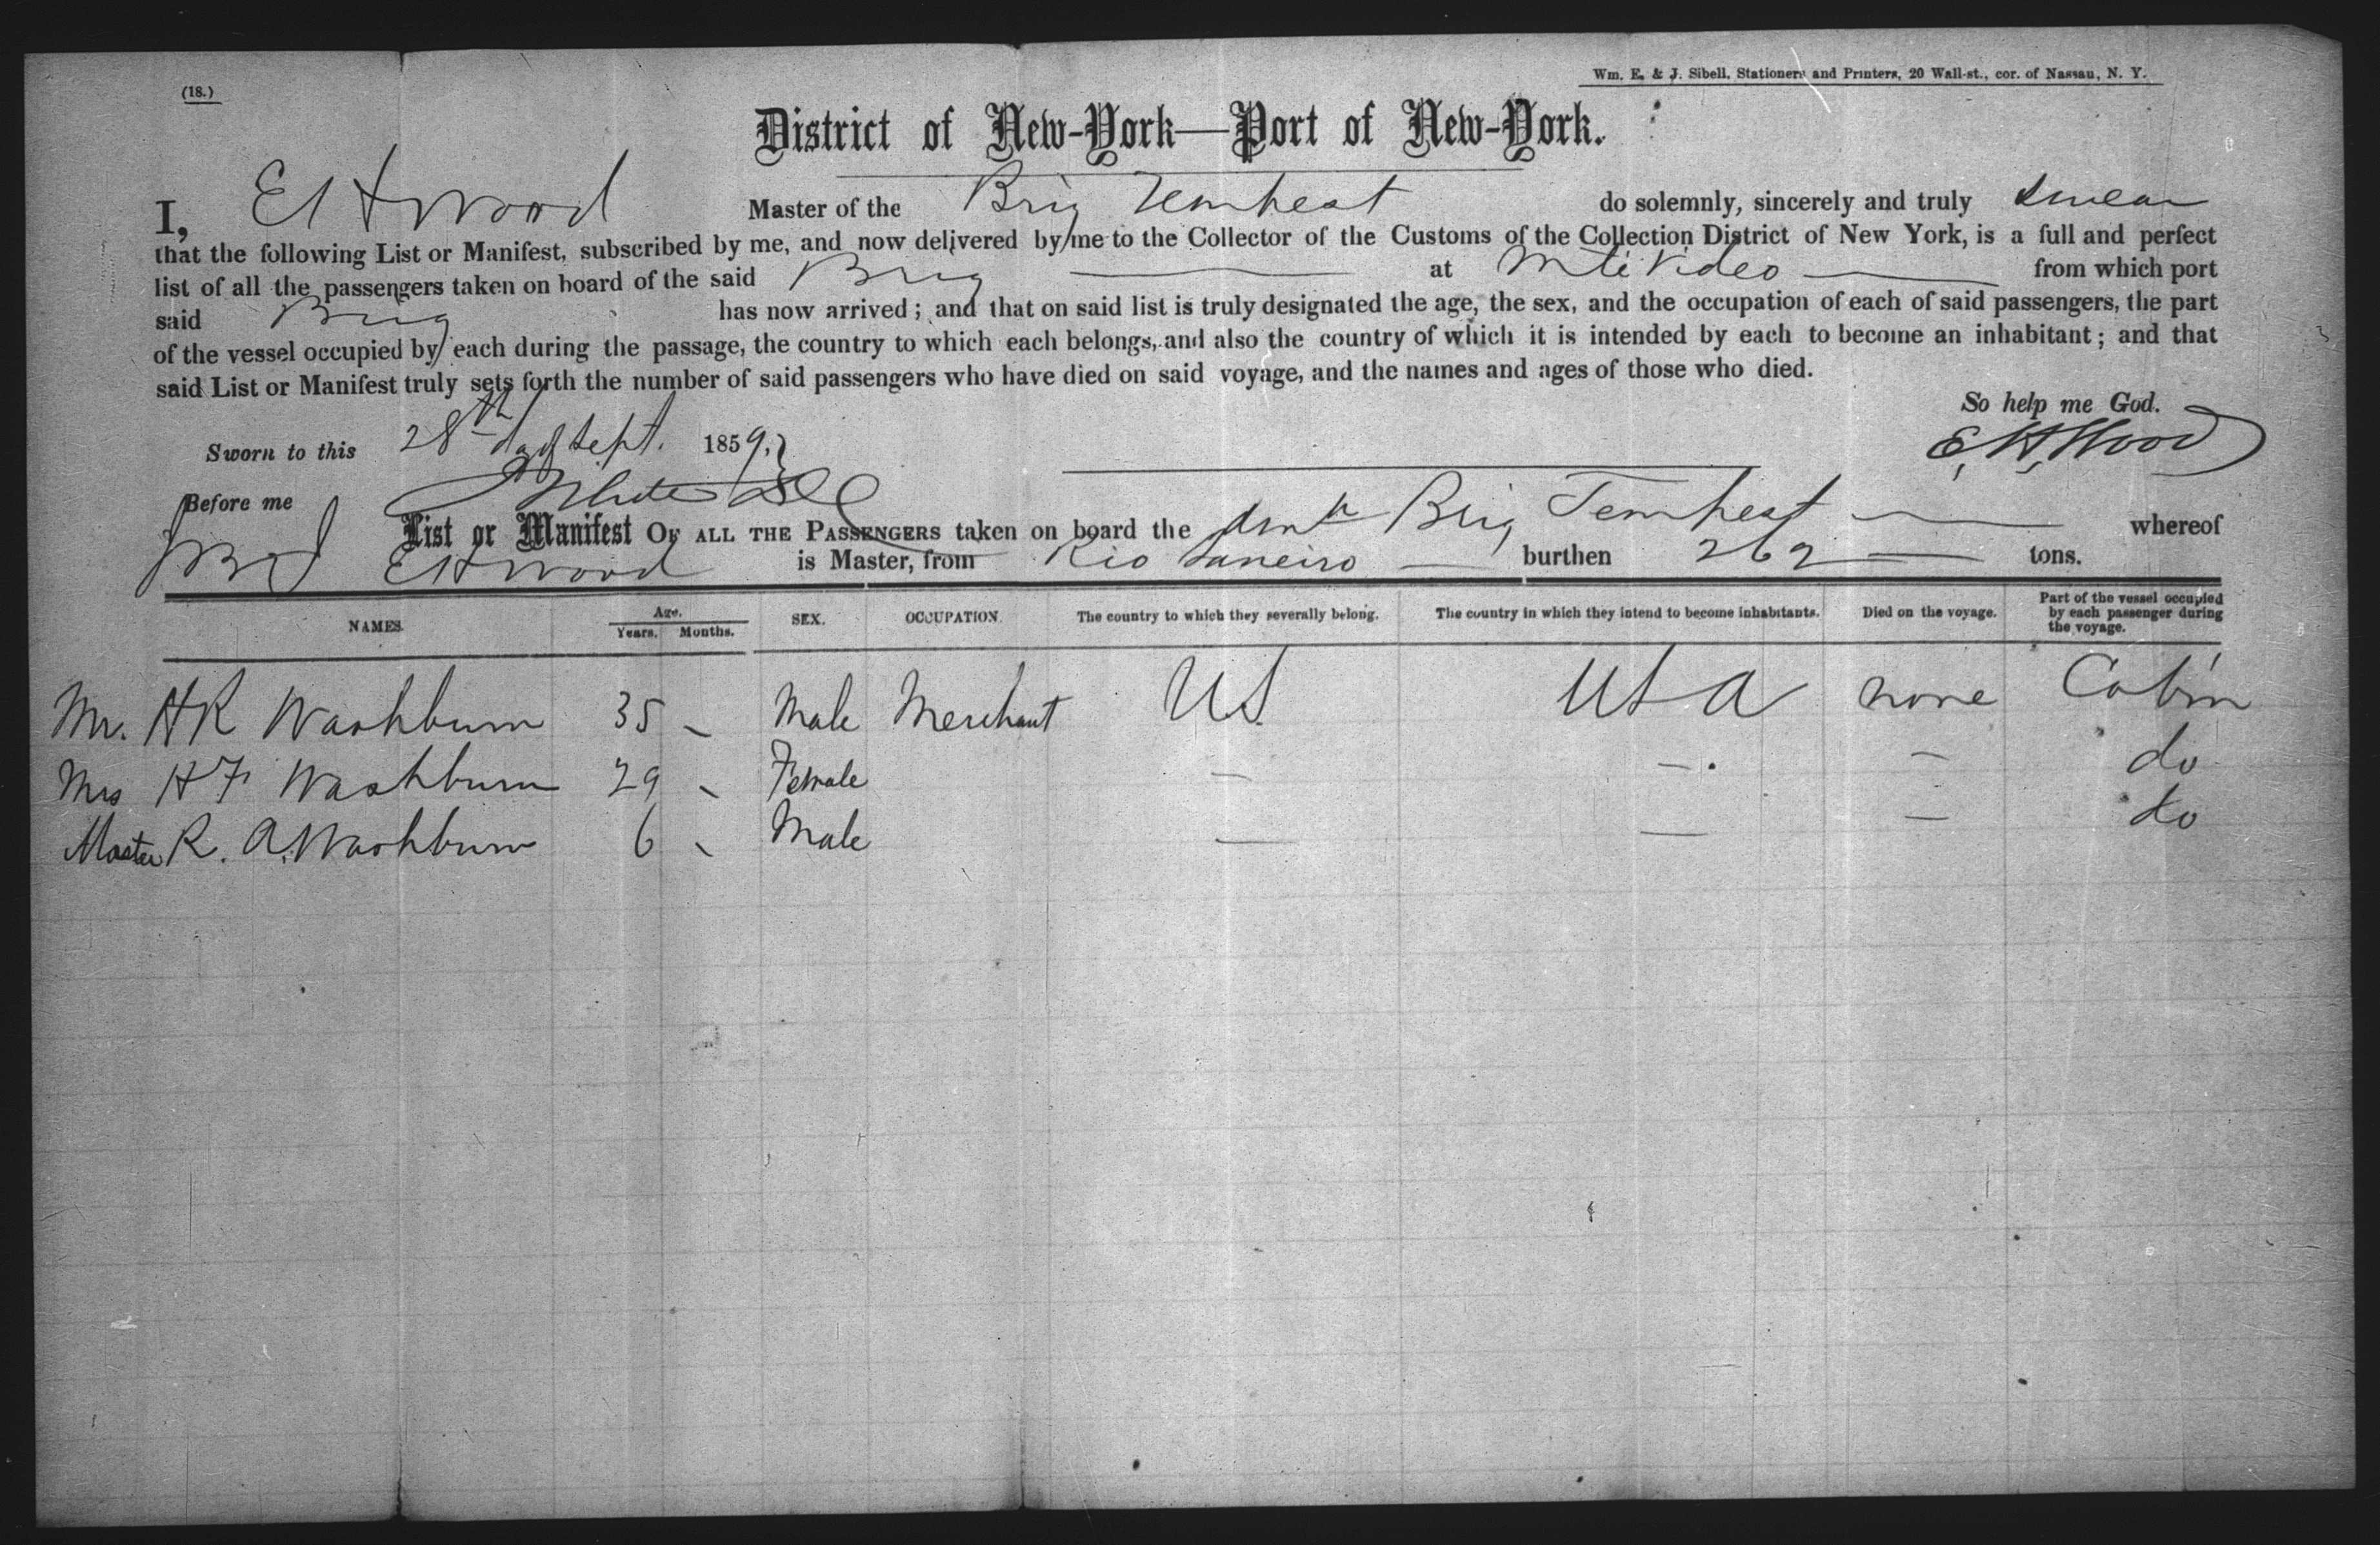 (18.)
Wm. E. & J. Sibell, Stationers and Printers, 20 Wall-st., cor. of Nassau, N. Y.
District of New-York—Port of New-York.
I, E H Wood Master of the Brig Tempest do solemnly, sincerely and truly swear
that the following List or Manifest, subscribed by me, and now delivered by me to the Collector of the Customs of the Collection District of New York, is a full and perfect
list of all the passengers taken on board of the said Brig at Mte Video from which port
said Brig has now arrived; and that on said list is truly designated the age, the sex, and the occupation of each of said passengers, the part
of the vessel occupied by each during the passage, the country to which each belongs, and also the country of which it is intended by each to become an inhabitant; and that
said List or Manifest truly sets forth the number of said passengers who have died on said voyage, and the names and ages of those who died.
So help me God.
Sworn to this 28th day of Sept. 1859.
E. H. Wood
Before me
List or Manifest OF ALL THE PASSENGERS taken on board the Amn Brig Tempest whereof
E H Wood is Master, from Rio Janeiro burthen 262 tons.
NAMES. Age. Years. Months. SEX. OCCUPATION. The country to which they severally belong. The country in which they intend to become inhabitants. Died on the voyage. Part of the vessel occupied by each passenger during the voyage.
Mr. H R Washburn 35 - Male Merchant US USA none Cabin
Mrs H F Washburn 29 - Female — — — do
Master R. A. Washburn 6 - Male — — — do